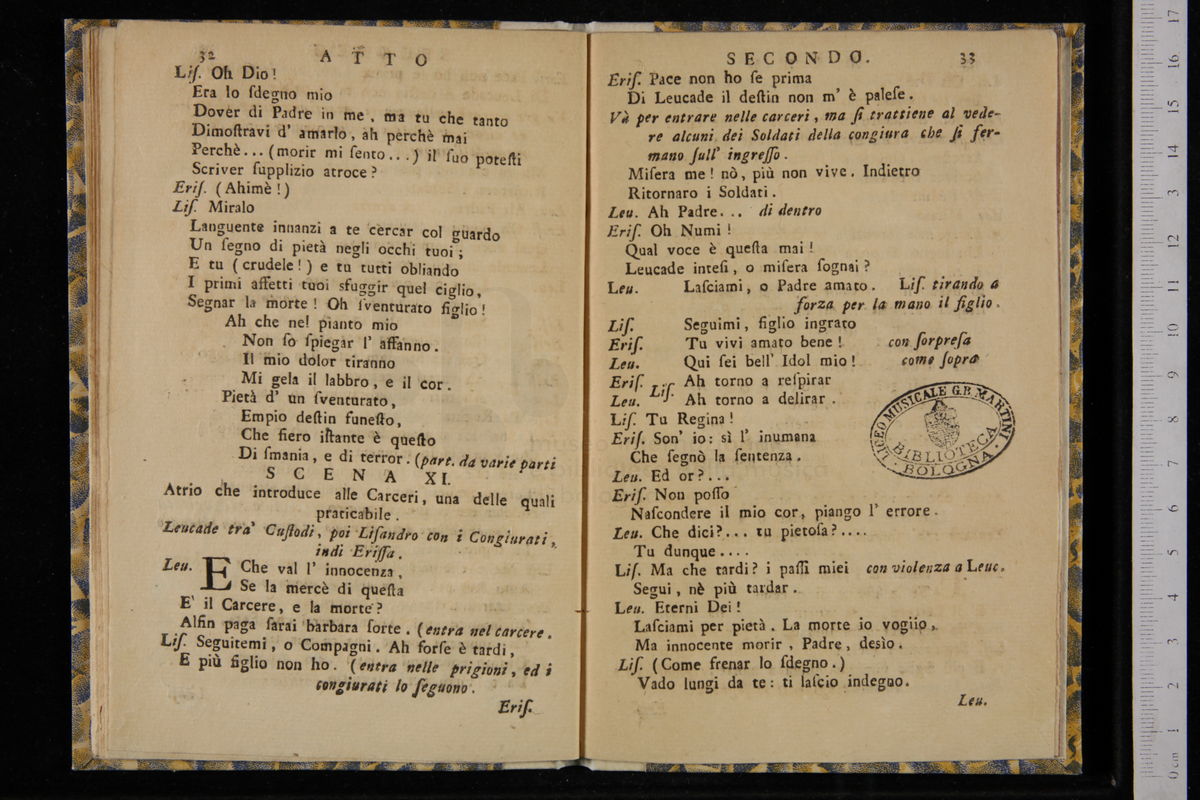 32 A T T O
Liſ. Oh Dio!
Era lo ſdegno mio
Dover di Padre in me, ma tu che tanto
Dimoſtravi d' amarlo, ah perchè mai
Perchè... (morir mi ſento...) il ſuo poteſti
Scriver ſupplizio atroce?
Eriſ. (Ahimè!)
Liſ. Miralo
Languente innanzi a te cercar col guardo
Un ſegno di pietà negli occhi tuoi;
E tu (crudele!) e tu tutti obliando
I primi affetti tuoi sfuggir quel ciglio,
Segnar la morte! Oh ſventurato figlio!
Ah che nel pianto mio
Non ſo ſpiegar l' affanno.
Il mio dolor tiranno
Mi gela il labbro, e il cor.
Pietà d' un ſventurato,
Empio deſtin funeſto,
Che fiero iſtante è queſto
Di ſmania, e di terror. (part. da varie parti
S C E N A XI.
Atrio che introduce alle Carceri, una delle quali
praticabile.
Leucade tra' Cuſtodi, poi Liſandro con i Congiurati,
indi Eriſſa.
Leu. E Che val l' innocenza,
Se la mercè di queſta
E' il Carcere, e la morte?
Alfin paga ſarai barbara ſorte. (entra nel carcere.
Liſ. Seguitemi, o Compagni. Ah forſe è tardi,
E più figlio non ho. (entra nelle prigioni, ed i
congiurati lo ſeguono.
Eriſ.
SECONDO. 33
Eriſ. Pace non ho ſe prima
Di Leucade il deſtin non m' è paleſe.
Và per entrare nelle carceri, ma ſi trattiene al vede-
re alcuni dei Soldati della congiura che ſi fer-
mano ſull' ingreſſo.
Miſera me! nò, più non vive. Indietro
Ritornaro i Soldati.
Leu. Ah Padre... di dentro
Eriſ. Oh Numi!
Qual voce è queſta mai!
Leucade inteſi, o miſera ſognai?
Leu. Laſciami, o Padre amato. Liſ. tirando a
forza per la mano il figlio.
Liſ. Seguimi, figlio ingrato
Eriſ. Tu vivi amato bene! con ſorpreſa
Leu. Qui ſei bell' Idol mio! come ſopra
Eriſ. Ah torno a reſpirar
Leu. Liſ. Ah torno a delirar.
Liſ. Tu Regina!
Eriſ. Son' io: sì l' inumana
Che ſegnò la ſentenza.
Leu. Ed or?...
Eriſ. Non poſſo
Naſcondere il mio cor, piango l' errore.
Leu. Che dici?... tu pietoſa?....
Tu dunque....
Liſ. Ma che tardi? i paſſi miei con violenza a Leuc.
Segui, nè più tardar.
Leu. Eterni Dei!
Laſciami per pietà. La morte io voglio,
Ma innocente morir, Padre, desìo.
Liſ. (Come frenar lo ſdegno.)
Vado lungi da te: ti laſcio indegno.
Leu.
LICEO MUSICALE G.B. MARTINI
BIBLIOTECA
BOLOGNA
0 cm 1 2 3 4 5 6 7 8 9 10 11 12 13 14 15 16 17